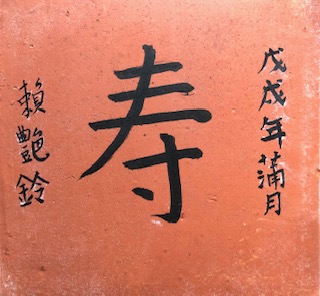 戊戌年蒲月
寿
賴艷鈴